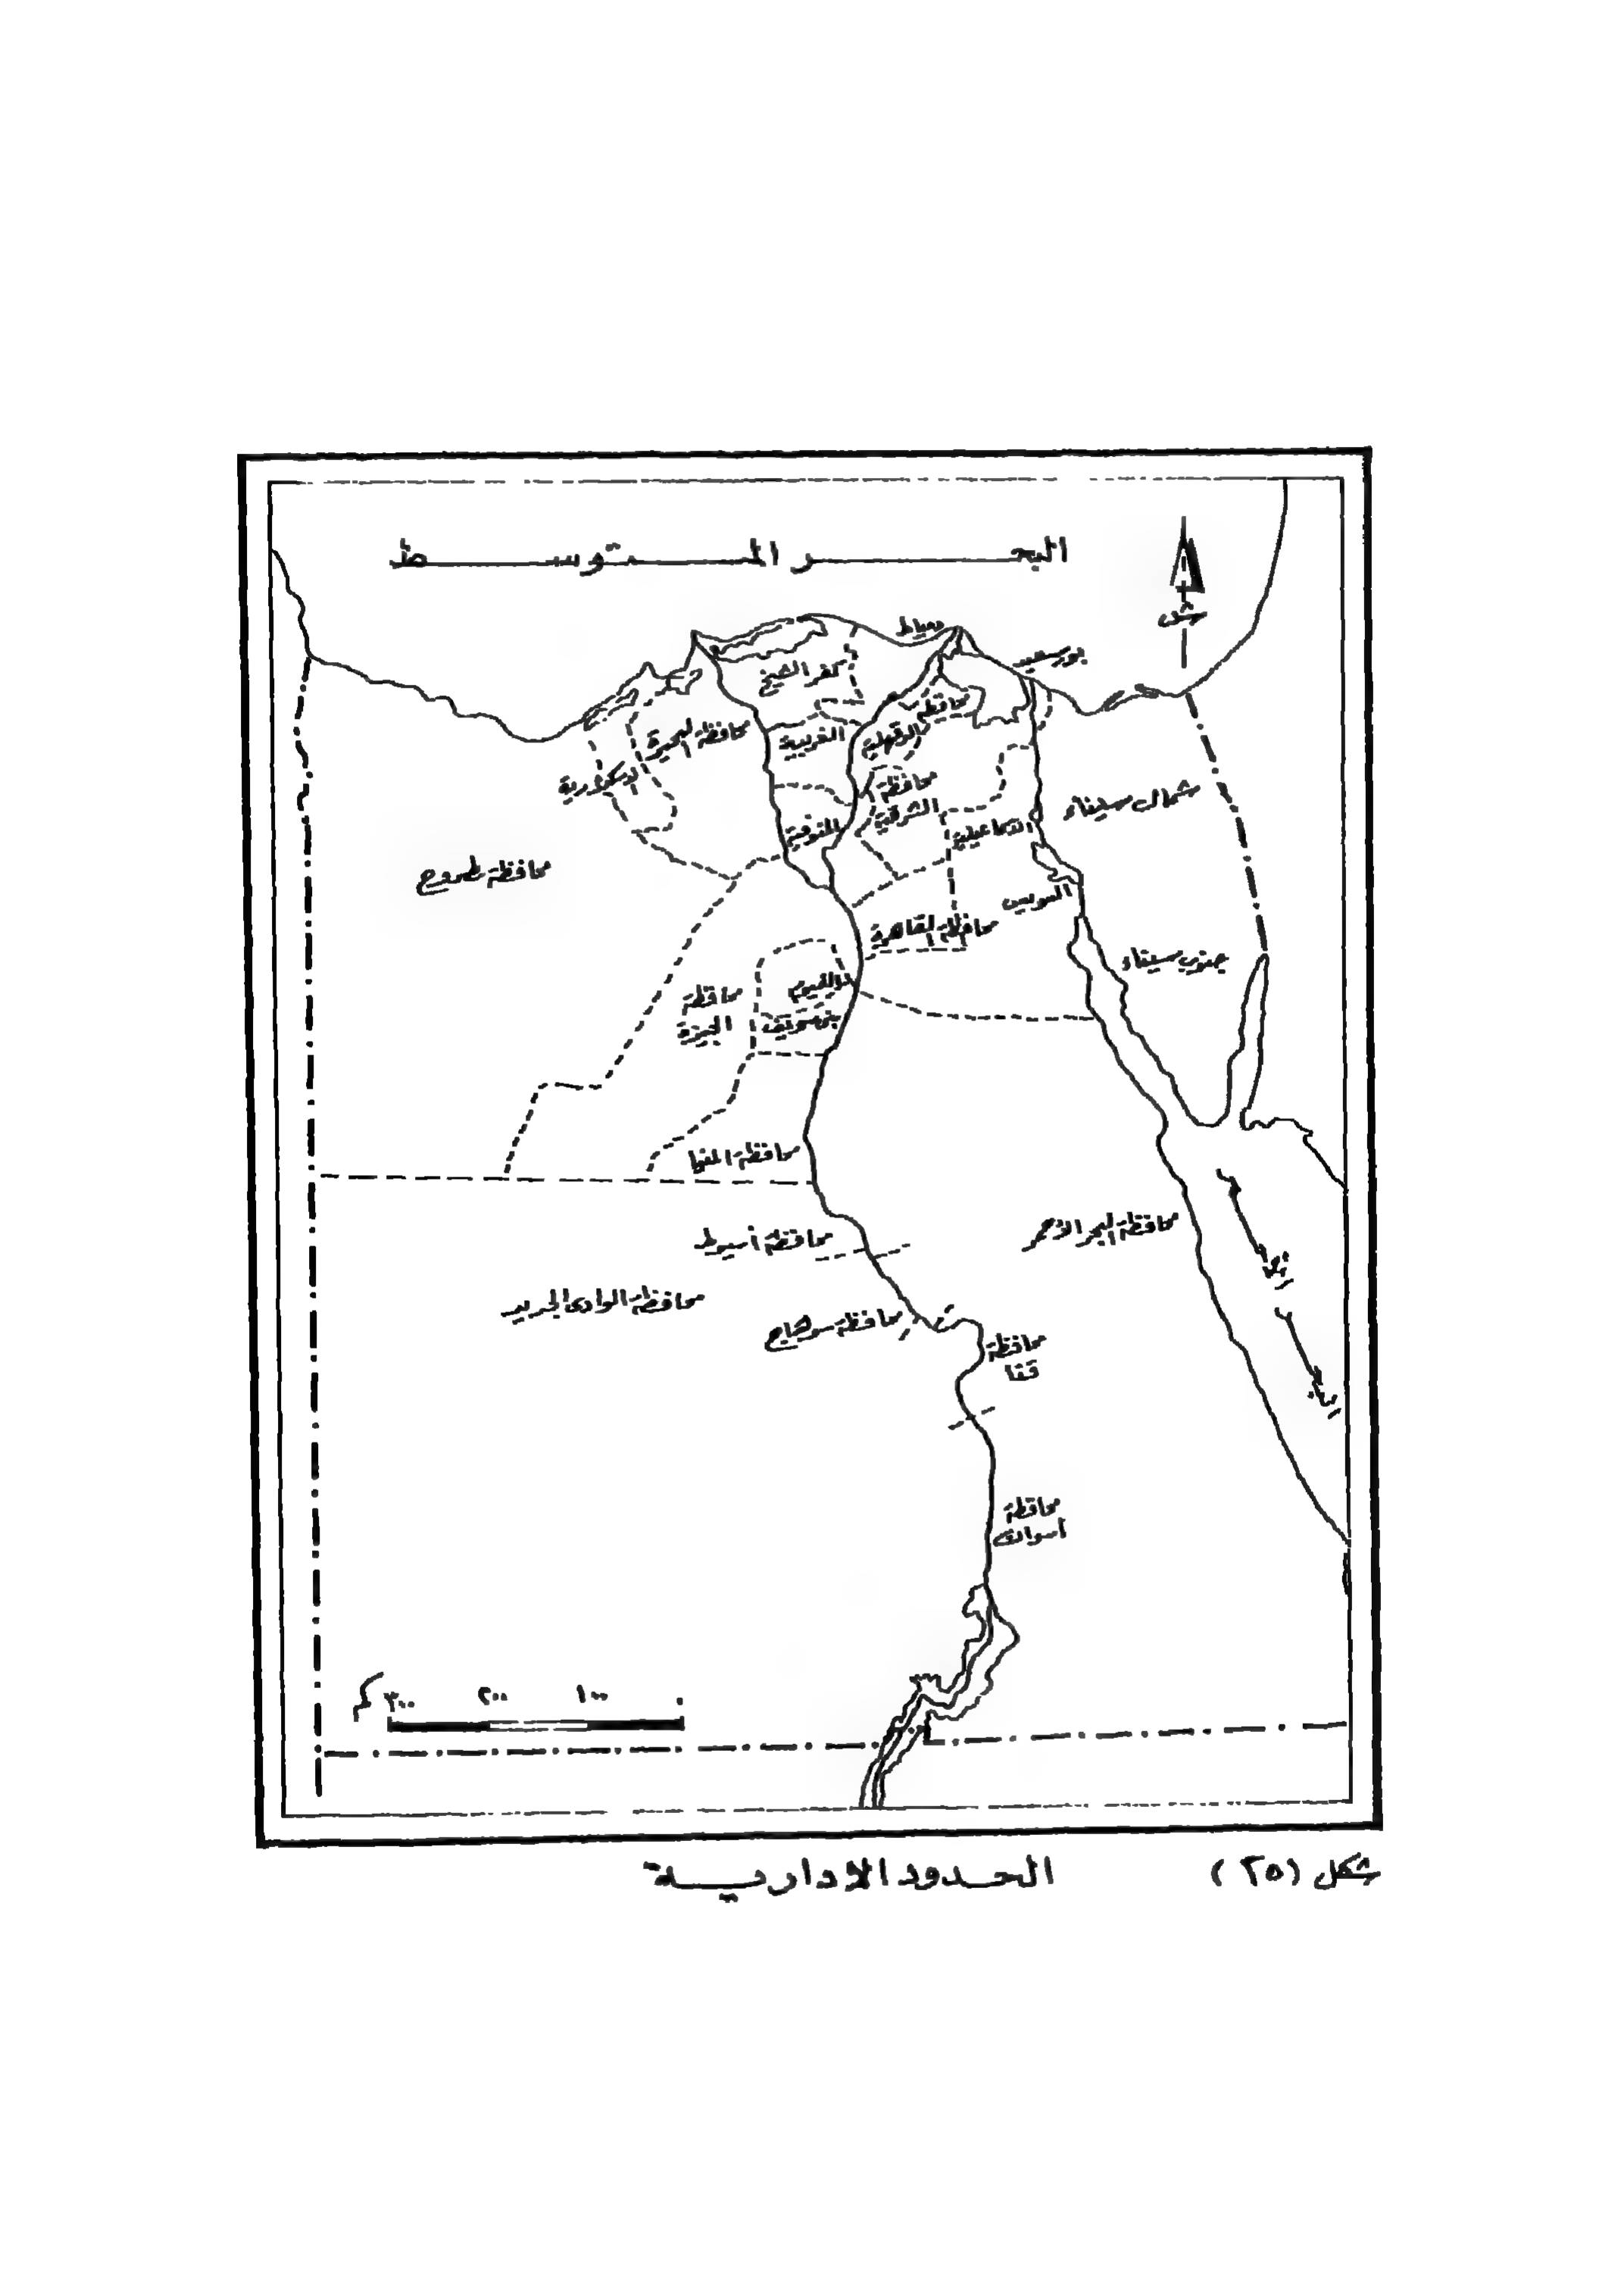 البحر المتوسط
ش
دمياط
بورسعيد
كفر الشيخ
محافظة
الدقهلية
محافظة البحيرة
الغربية
الاسكندرية
محافظة
الشرقية
شمال سيناء
المنوفية
الاسماعيلية
محافظة مطروح
السويس
محافظة القاهرة
جنوب سيناء
الفيوم
محافظة
الجيزة
بنى سويف
محافظة المنيا
محافظة البحر الأحمر
محافظة أسيوط
محافظة الوادى الجديد
محافظة سوهاج
محافظة
قنا
محافظة
أسوان
٠ ١٠٠ ٢٠٠ ٣٠٠ كم
شكل (٢٥) الحدود الادارية